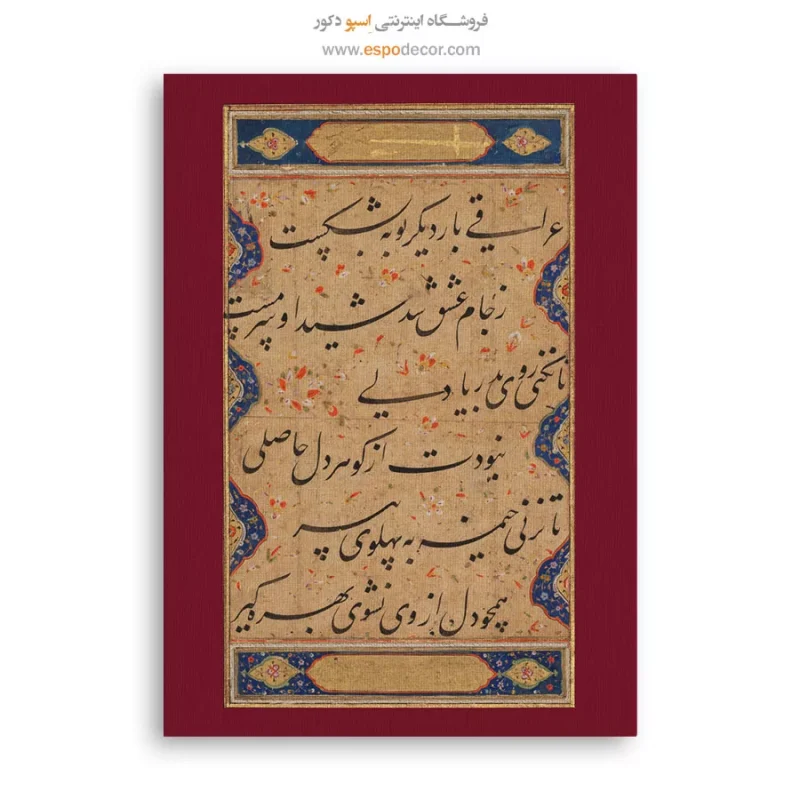 فروشگاه اینترنتی اِسپو دکور
www.espodecor.com
عراقی بار دیکر توبه بشکست
زجام عشق شد شیدا و سرمست
تا نکنی روی بدریا دلی
نبودت از کوهر دل حاصلی
تا نزنی خیمه به پهلوی پیر
همچو دل از وی نشوی بهره کیر